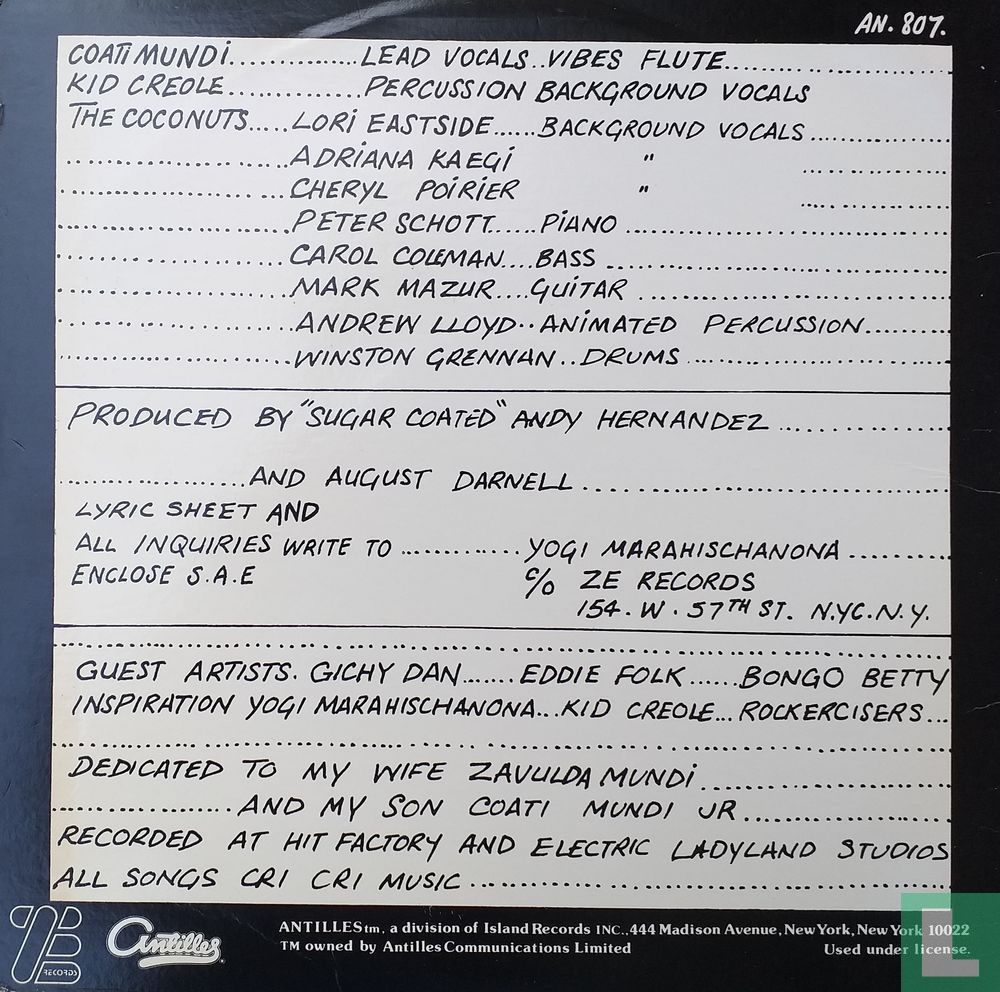 AN. 807.
COATI MUNDI..............LEAD VOCALS..VIBES FLUTE....................
KID CREOLE..............PERCUSSION BACKGROUND VOCALS
THE COCONUTS.....LORI EASTSIDE......BACKGROUND VOCALS............
......................ADRIANA KAEGI " ............
......................CHERYL POIRIER " ............
......................PETER SCHOTT......PIANO ..............................
......................CAROL COLEMAN....BASS ..............................
......................MARK MAZUR....GUITAR ..............................
......................ANDREW LLOYD..ANIMATED PERCUSSION.........
......................WINSTON GRENNAN..DRUMS .........................
PRODUCED BY "SUGAR COATED" ANDY HERNANDEZ ...............
..................AND AUGUST DARNELL .................................
LYRIC SHEET AND
ALL INQUIRIES WRITE TO ............YOGI MARAHISCHANONA .........
ENCLOSE S.A.E c/o ZE RECORDS
154. W. 57TH ST. N.Y.C. N.Y.
GUEST ARTISTS. GICHY DAN.......EDDIE FOLK......BONGO BETTY
INSPIRATION YOGI MARAHISCHANONA...KID CREOLE...ROCKERCISERS...
DEDICATED TO MY WIFE ZAVULDA MUNDI......................
..................AND MY SON COATI MUNDI JR...................
RECORDED AT HIT FACTORY AND ELECTRIC LADYLAND STUDIOS
ALL SONGS CRI CRI MUSIC ........................................
ZE RECORDS
Antilles
ANTILLEStm, a division of Island Records INC.,444 Madison Avenue, New York, New York 10022
TM owned by Antilles Communications Limited Used under license.
L